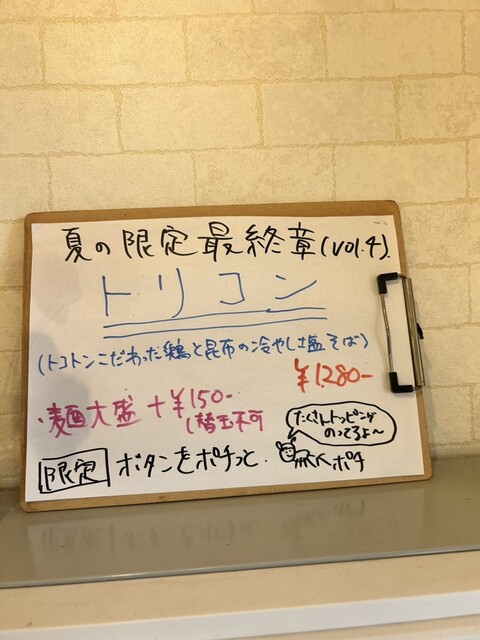 夏の限定最終章(vol.4)
トリコン
(トコトンこだわった鶏と昆布の冷やし塩そば)
¥1280-
・麺大盛+¥150-
(替玉不可
たくさんトッピング
のってるよ〜
限定 ボタンをポチっと
ポチ